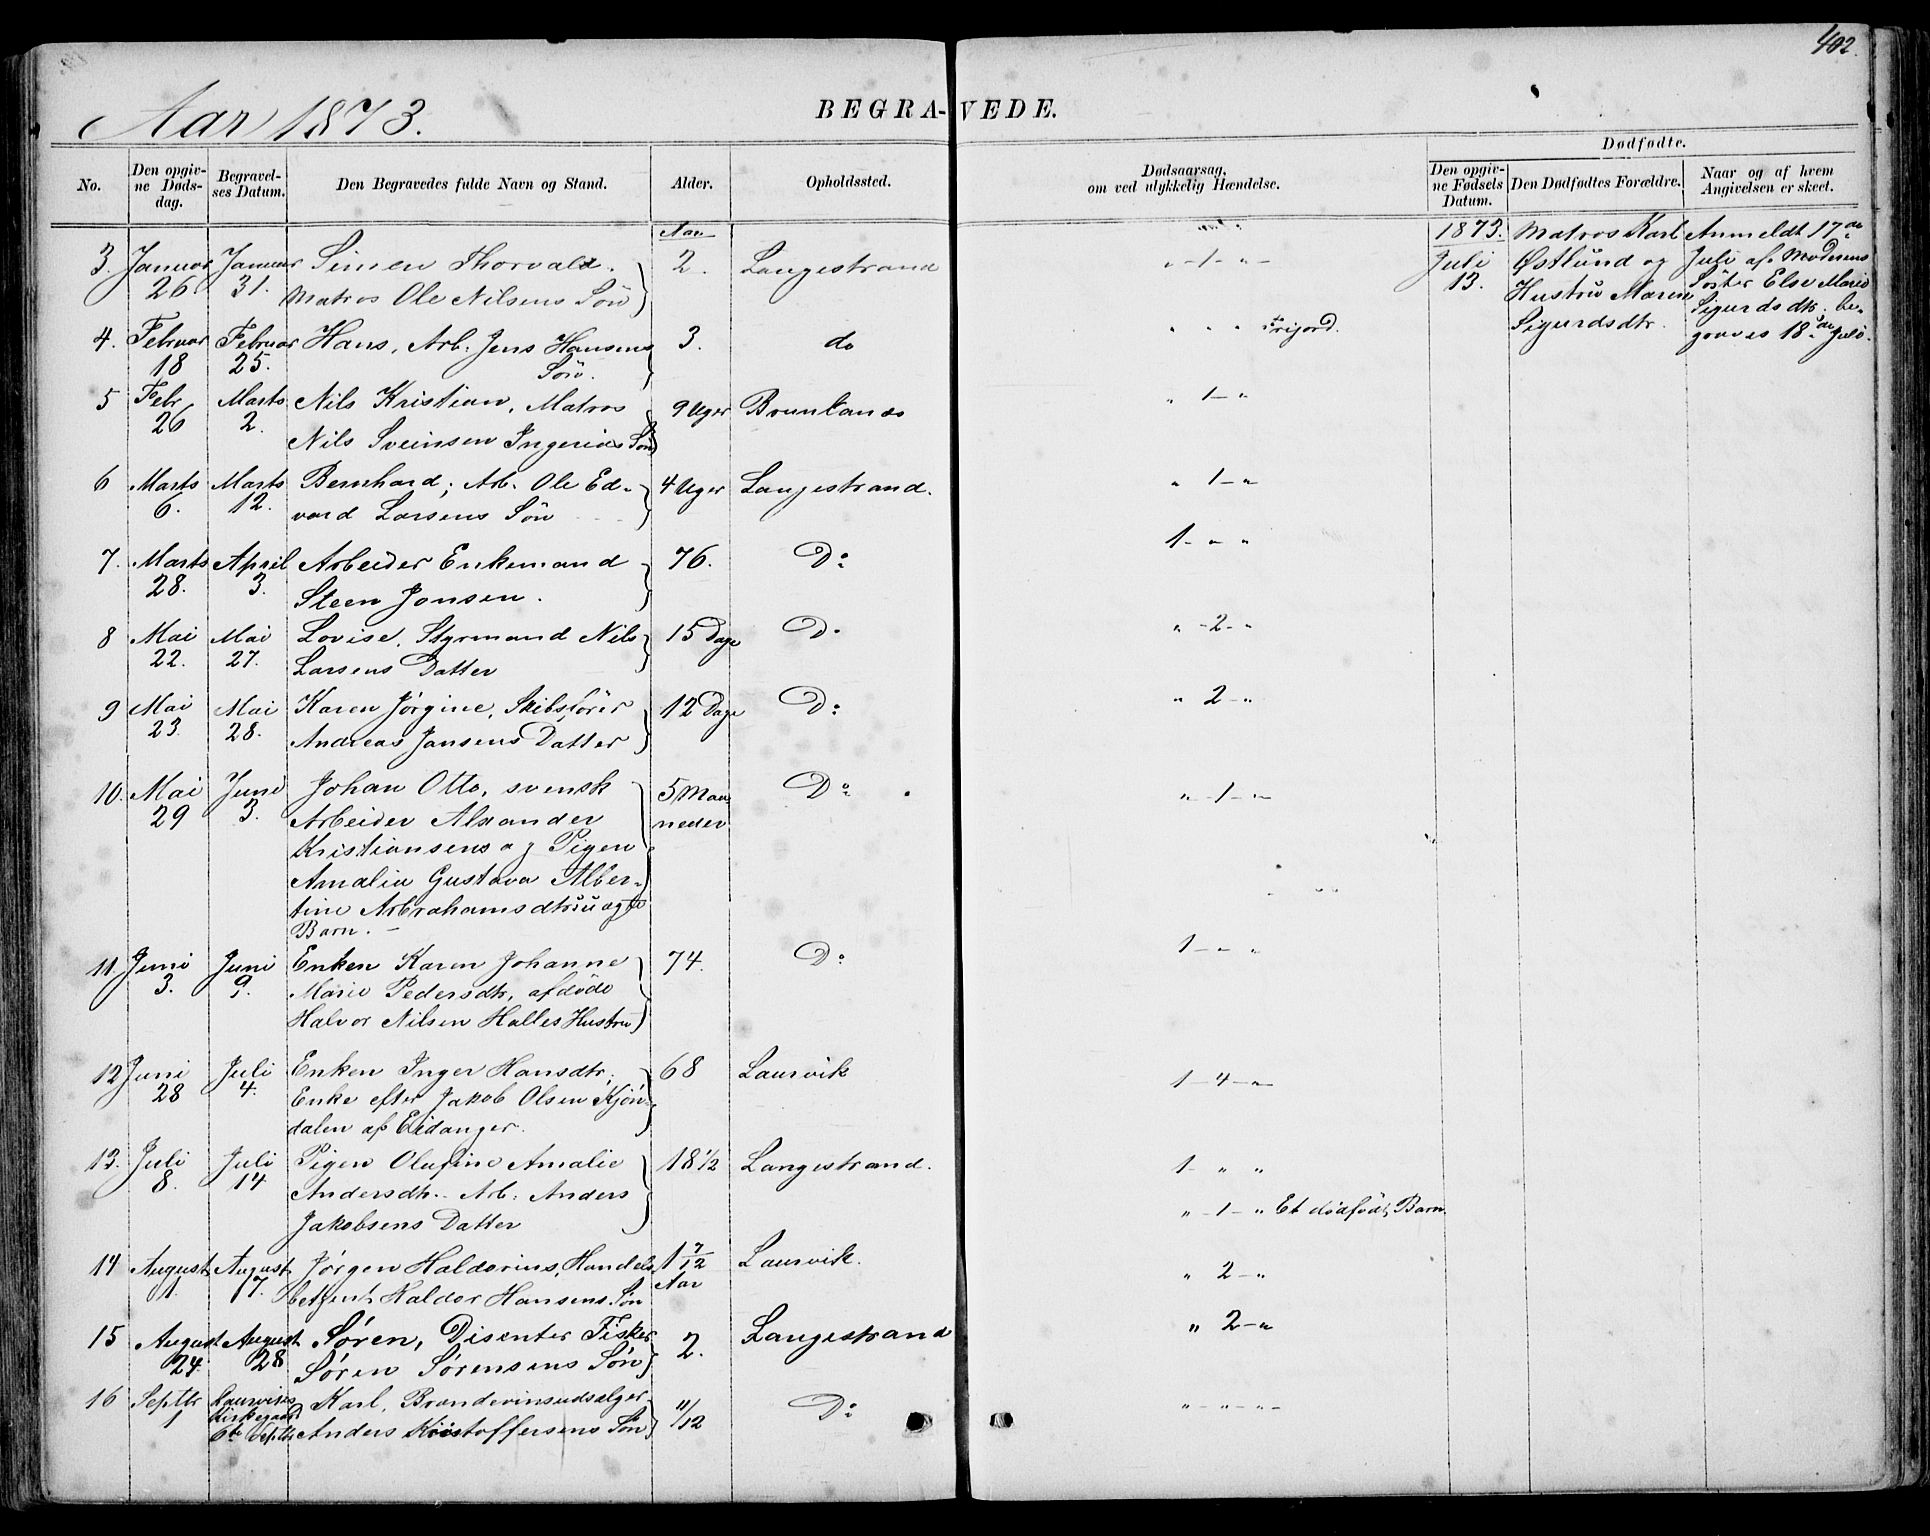 402.
Aar 1873.
BEGRAVEDE.
No.
Den opgivne Dødsdag.
Begravelses Datum.
Den Begravedes fulde Navn og Stand.
Alder.
Opholdssted.
Dødsaarsag,
om ved ulykkelig Hændelse.
Dødfødte.
Den opgivne Fødsels Datum.
Den Dødfødtes Forældre.
Naar og af hvem Angivelsen er skeet.
Aar
3. Januar Januar Simen Thorvald. 2. Langestrand " -1- " -
26. 31. Matros Ole Nilsens Søn
4. Februar Februar Hans, Arb. Jens Hansens 3. do " " "
18 25. Søn.
5 Febr Marts Nils Kristian, Matros 9 Uger Brunlanes " 1- "
26 2. Nils Sveinsen Ingeriøs Søn
6 Marts Marts Bernhard, Arb. Ole Ed- 4 Uger Langestrand. " 1- "
6. 12. vard Larsens Søn
7. Marts April Arbeider Enkemand 76. Do 1- " "
28. 3. Steen Jonsen.
8 Mai Mai Lovise, Styrmand Nils 15 Dage Do " -2- "
22. 27. Larsens Datter
9 Mai Mai Karen Jørgine, Skibsfører 12 Dage Do " 2- "
23. 28. Andreas Jansens Datter
10. Mai Juni Johan Otto, svensk 5 Maa- Do " -1- "
29 3. Arbeider Alxander neder
Kristiansens og Pigen
Amalia Gustava Alber-
tine Arbrahamsdtrs uægte
Barn. -
11. Juni Juni Enken Karen Johanne 74. Do 1- " "
3. 9. Marie Pedersdtr, afdøde
Halvor Nilsen Halles Hustru
12 Juni Juli Enken Inger Hansdtr, 68 Laurvik 1-4- "
28 4. Enke efter Jakob Olsen Kjøn-
dalen af Eidanger.
13. Juli Juli Pigen Olufine Amalie 18 1/2 Langestrand. 1- " "
8. 14 Andersdtr. Arb. Anders
Jakobsens Datter " -1- " Et dødfødt Barn.
14 August August Jørgen Haldorius, Handels 1 7/12 Laurvik. " 2- "
1. 7. betjent Haldor Hansens Søn Aar
15 August August Søren, Disenter Fisker 2. Langestrand " 2- "
24. 28 Søren Sørensens Søn
16 Septbr Laurviks Karl, Brændevinsudsælger 11/12 Do " - " - "
1 Kirkegaard Anders Kristoffersens Søn
6te Septbr
1873. Matros Karl Anmeldt 17de
Juli Østlund og Juli af Moderens
13. Hustru Maren Søster Else Marie
Sigurdsdtr. Sigurdsdtr. be-
graves 18de Juli.